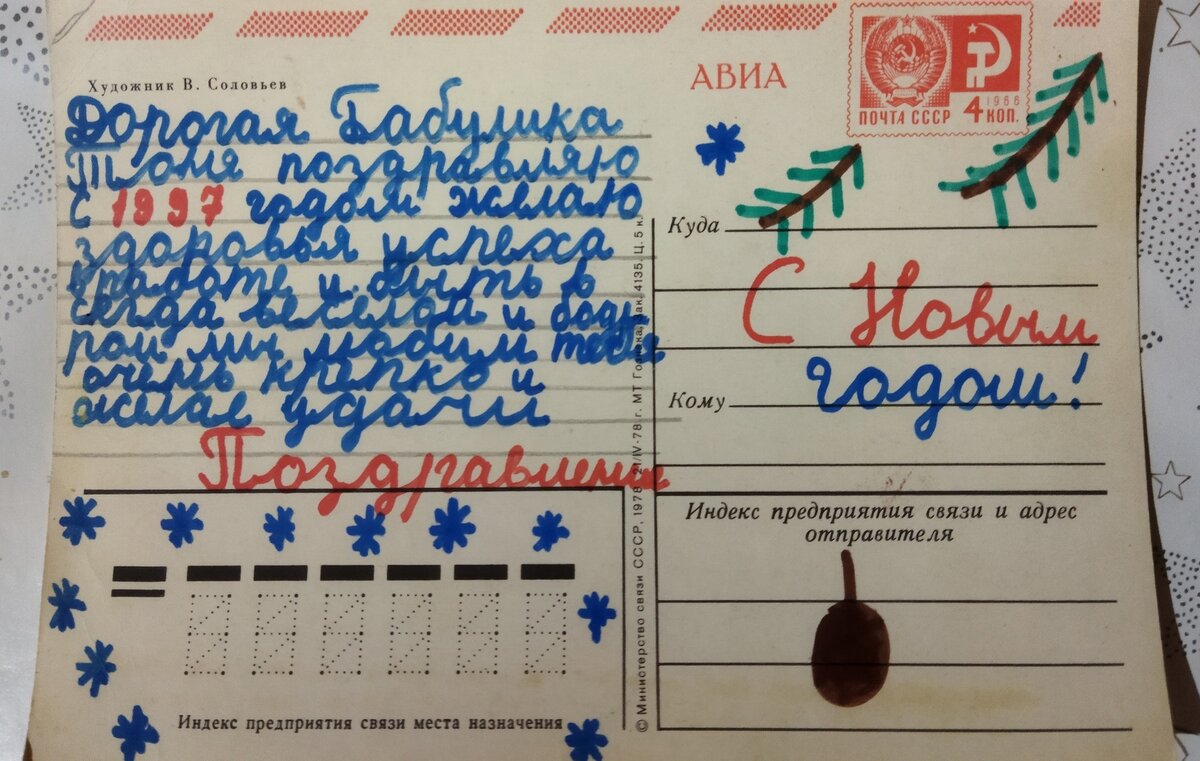 Художник В. Соловьев
АВИА
1966
ПОЧТА СССР 4 КОП.
Дорогая Бабулика
Тоня поздравляю
с 1997 годом желаю
здоровья успеха
в работе и быть в
сегда веселой и бод
рой мы любим тебя
очень крепко и
желае удачи
Поздравление
Куда
С Новым
годом!
Кому
Индекс предприятия связи и адрес
отправителя
Индекс предприятия связи места назначения
© Министерство связи СССР, 1978. 21/IV-78 г. МТ Гознака. Зак. 4135. Ц. 5 к.